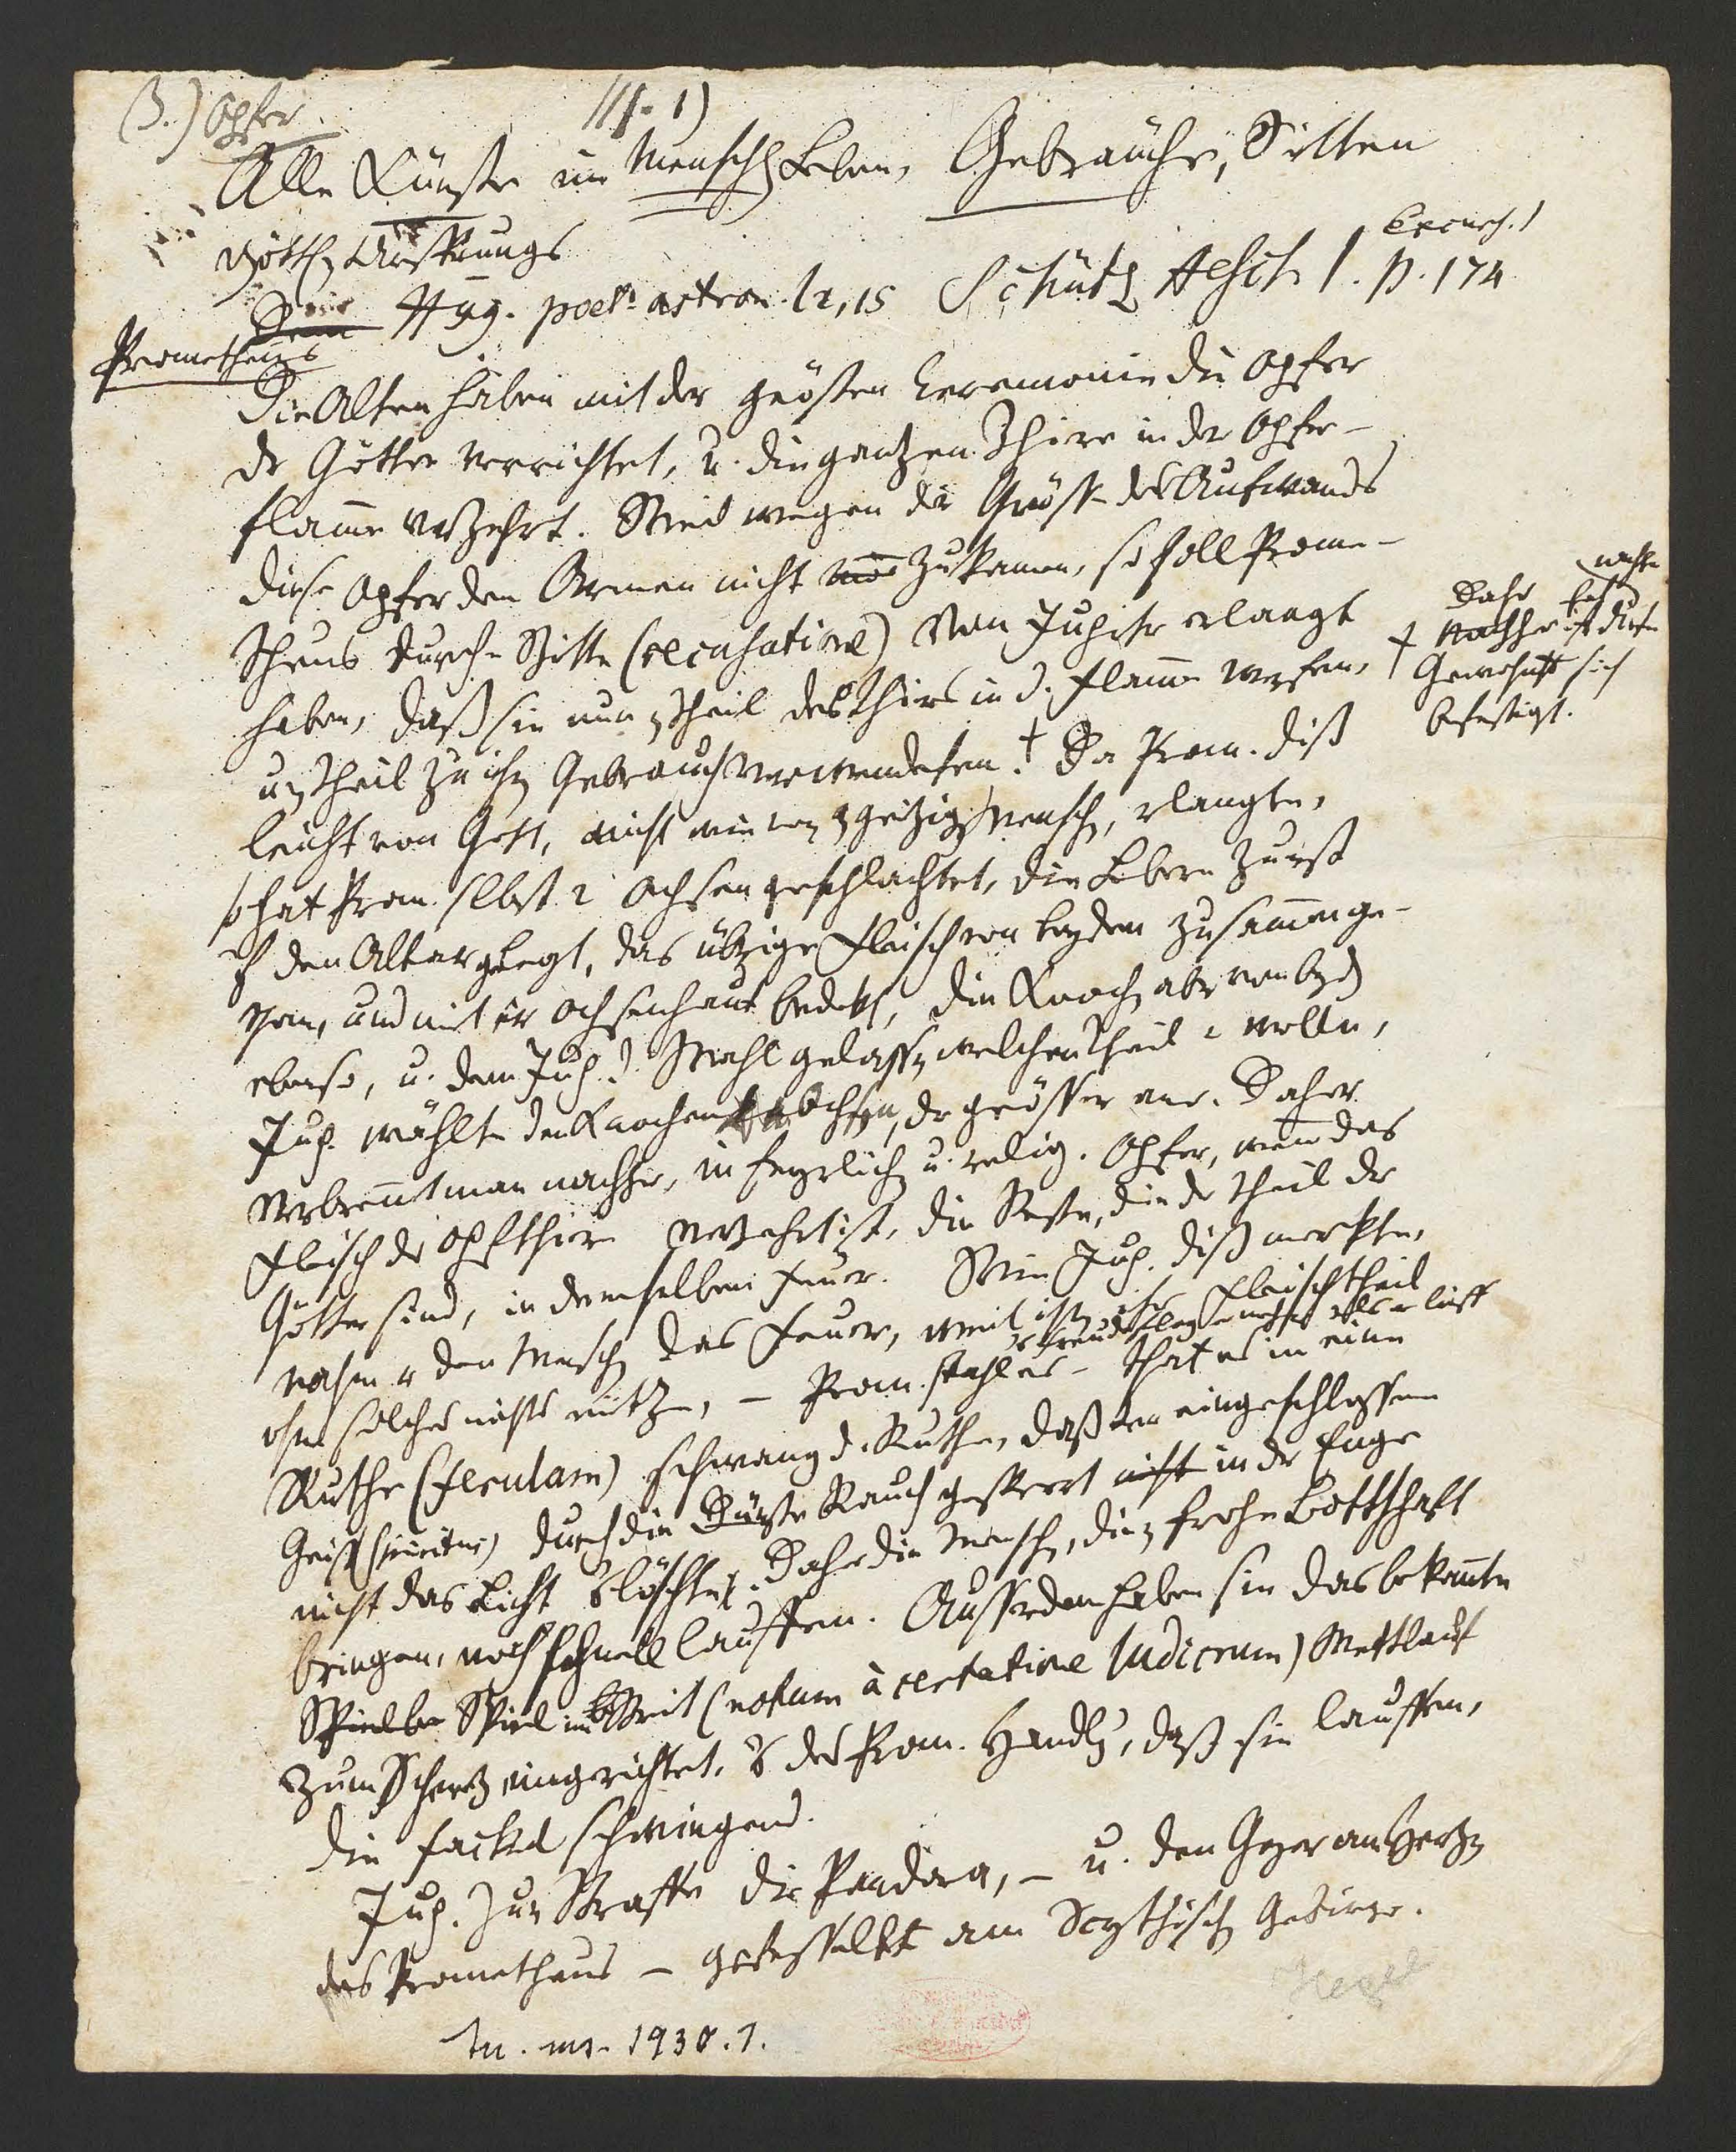 (3.) Opfer
III. 1)
Alle Künste im Menschl Leben, Gebräuche, Sitten
göttl Ursprungs
Hyg. poet. astron. l 2, 15 Schütz Aesch. I. p. 174
Excurs. 1
Prometheus
Die Alten haben mit der grösten Ceremonie die Opfer
der Götter verrichtet, u. die gantzen Thiere in der Opfer-
flamme verzehrt. Weil wegen der Grösse des Aufwands
diese Opfer den Armen nicht zukamen, so soll Prome-
theus durch Bitte (recusatione) von Jupiter erlangt
haben, daß sie nur Theil des Thiers in d. Flamme werfen,
u Theil zu ihr Gebrauch verwendeten. † Da Prom. diß
† Daher hat nachher diese
Gewohnheit sich
befestigt.
leicht von Gott, nicht wie von geitzig Mensch, erlangte,
so hat Prom. selbst 2 Ochsen geschlachtet, die Lebern zuerst
auf den Altar gelegt, das übrige Fleisch von beyden zusammenge-
than, und mit er Ochsenhaut bedekt, die Knoch aber von beyd
ebenso, u. dem Jup. d. Wahl gelassen welchen Theil er wolle,
Jup. wählte den Knochen Ochsen, der grösser war. Daher
verbrennt man nachher, in feyerlich u. relig. Opfer, wenn das
Fleisch der Opfthiere verzehrt ist, die Reste, die der Theil der
Götter sind, in demselben Feuer. Wie Jup. diß merkte,
nahm er den Mensch das Feuer, weil ihr Fleischtheil
ohne solches nichts nütze, – Prom. stahl es – that es in eine
Ruthe (ferulam) schwang d. Ruthe, daß der eingeschlossene
Geist (spiritus) durch die Rauch gesperrt in der Enge
nicht das Licht löschte. Daher die Mensch, die frohe Bottschaft
bringen, noch schnell lauffen. Ausserdem haben sie das bekannte
Spiel im Streit (notum à certatione ludicrum) Wettlauf
zum Schertz eingerichtet, des Prom. Handlg, daß sie lauffen,
die Fackel schwingend.
Jup. zur Straffe die Pandora, – u. den Geyer am Hertzen
des Prometheus – gefesselt am Scythisch Gebirge.
Hegel
In. ms. 1930.1.